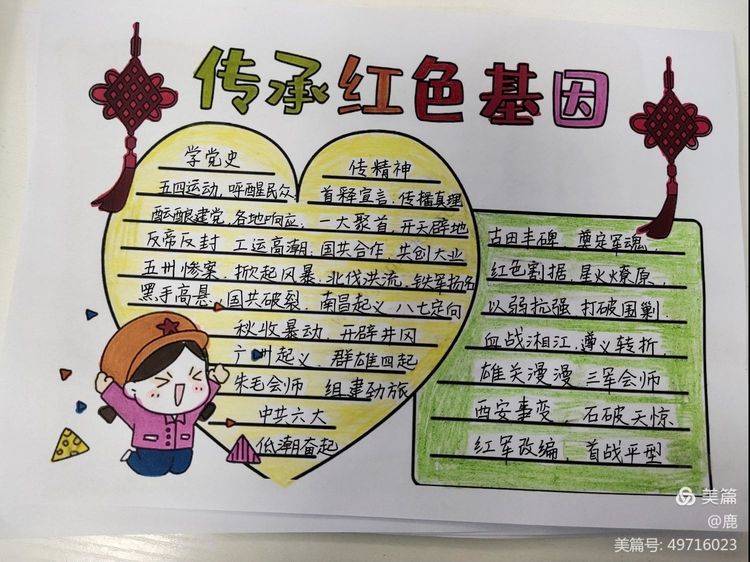 传承红色基因
学党史 传精神
五四运动,呼醒民众 首释宣言,传播真理
酝酿建党,各地响应, 一大聚首,开天辟地
反帝反封 工运高潮,国共合作,共创大业
五州惨案,掀起风暴,北伐洪流,铁军扬名
黑手高悬,国共破裂,南昌起义 八七定向
秋收暴动,开辟井冈
广州起义,群雄四起
朱毛会师 组建劲旅
中共六大
低潮奋起
古田丰碑,奠定军魂,
红色割据,星火燎原,
以弱抗强 打破围剿,
血战湘江,遵义转折,
雄关漫漫 三军会师
西安事变,石破天惊
红军改编,首战平型
美篇
@鹿
美篇号: 49716023